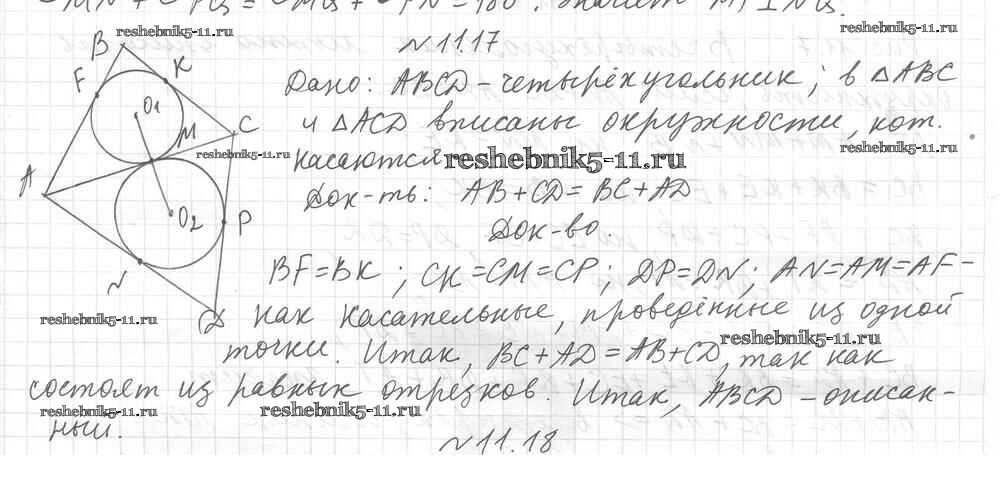 ∠MN + ∠PQ = ∠MQ + ∠PN = 180°. Значит MP⊥NQ.
reshebnik5-11.ru
reshebnik5-11.ru
№11.17
B
F
K
O1
M
C
A
O2
P
N
D
Дано: ABCD – четырёхугольник; в △ABC
и △ACD вписаны окружности, кот.
reshebnik5-11.ru
reshebnik5-11.ru
касаются
reshebnik5-11.ru
Док-ть: AB+CD=BC+AD
Док-во.
BF=BK; CK=CM=CP; DP=DN; AN=AM=AF –
reshebnik5-11.ru
как касательные, проведённые из одной
reshebnik5-11.ru
точки. Итак, BC+AD=AB+CD, так как
состоят из равных отрезков. Итак, ABCD – описан-
reshebnik5-11.ru
reshebnik5-11.ru
ный.
№11.18